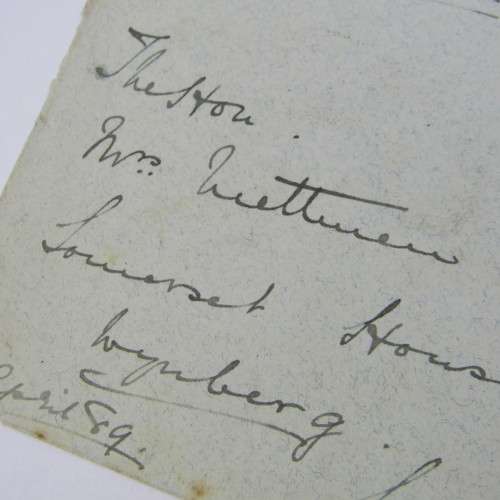 The Hon.
Mrs. Methuen
Somerset Hous
Wynberg.
April 89.